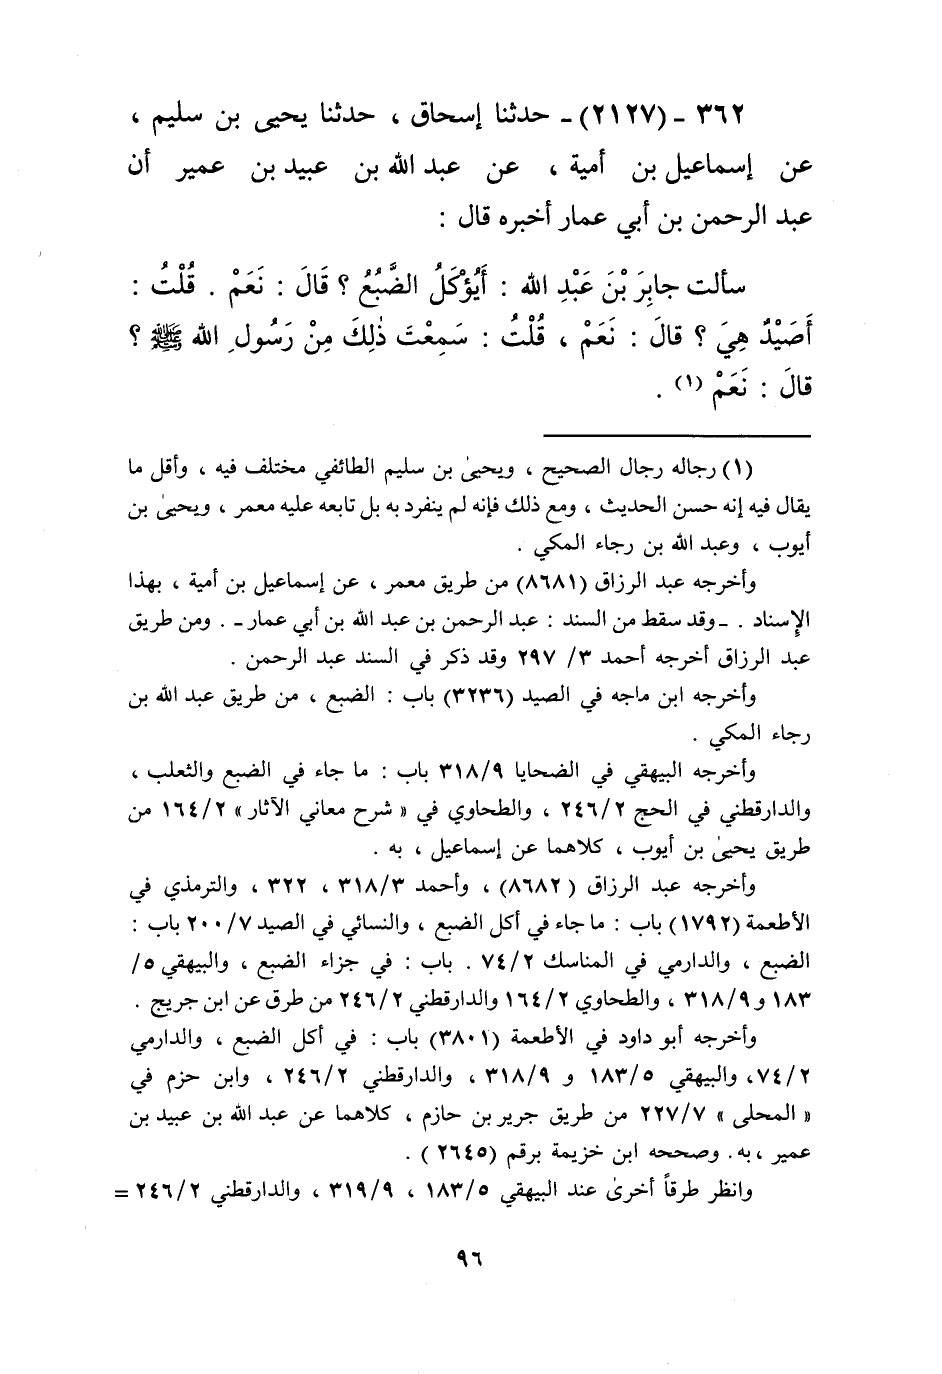 ٣٦٢ - (٢١٢٧) - حدثنا إسحاق ، حدثنا يحيى بن سليم ،
عن إسماعيل بن أمية ، عن عبد الله بن عبيد بن عمير أن
عبد الرحمن بن أبي عمار أخبره قال :
سألت جابِرَ بْنَ عَبْدِ الله : أَيُؤْكَلُ الضَّبُعُ ؟ قَالَ : نَعَمْ . قُلْتُ :
أَصَيْدٌ هِيَ ؟ قالَ : نَعَمْ ، قُلْتُ : سَمِعْتَ ذٰلِكَ مِنْ رَسُولِ الله ﷺ ؟
قالَ : نَعَمْ (١) .
(١) رجاله رجال الصحيح ، ويحيىٰ بن سليم الطائفي مختلف فيه ، وأقل ما
يقال فيه إنه حسن الحديث ، ومع ذلك فإنه لم ينفرد به بل تابعه عليه معمر ، ويحيىٰ بن
أيوب ، وعبد الله بن رجاء المكي .
وأخرجه عبد الرزاق (٨٦٨١) من طريق معمر ، عن إسماعيل بن أمية ، بهذا
الإسناد . - وقد سقط من السند : عبد الرحمن بن عبد الله بن أبي عمار - . ومن طريق
عبد الرزاق أخرجه أحمد ٣/ ٢٩٧ وقد ذكر في السند عبد الرحمن .
وأخرجه ابن ماجه في الصيد (٣٢٣٦) باب : الضبع ، من طريق عبد الله بن
رجاء المكي .
وأخرجه البيهقي في الضحايا ٣١٨/٩ باب : ما جاء في الضبع والثعلب ،
والدارقطني في الحج ٢٤٦/٢ ، والطحاوي في « شرح معاني الآثار » ١٦٤/٢ من
طريق يحيىٰ بن أيوب ، كلاهما عن إسماعيل ، به .
وأخرجه عبد الرزاق ( ٨٦٨٢) ، وأحمد ٣١٨/٣ ، ٣٢٢ ، والترمذي في
الأطعمة (١٧٩٢) باب : ما جاء في أكل الضبع ، والنسائي في الصيد ٢٠٠/٧ باب :
الضبع ، والدارمي في المناسك ٧٤/٢ . باب : في جزاء الضبع ، والبيهقي ٥/
١٨٣ و ٣١٨/٩ ، والطحاوي ١٦٤/٢ والدارقطني ٢٤٦/٢ من طرق عن ابن جريج .
وأخرجه أبو داود في الأطعمة (٣٨٠١) باب : في أكل الضبع ، والدارمي
٧٤/٢، والبيهقي ١٨٣/٥ و ٣١٨/٩ ، والدارقطني ٢٤٦/٢ ، وابن حزم في
« المحلى » ٢٢٧/٧ من طريق جرير بن حازم ، كلاهما عن عبد الله بن عبيد بن
عمير ، به. وصححه ابن خزيمة برقم (٢٦٤٥ ) .
وانظر طرقاً أخرىٰ عند البيهقي ١٨٣/٥ ، ٣١٩/٩ ، والدارقطني ٢٤٦/٢ =
٩٦